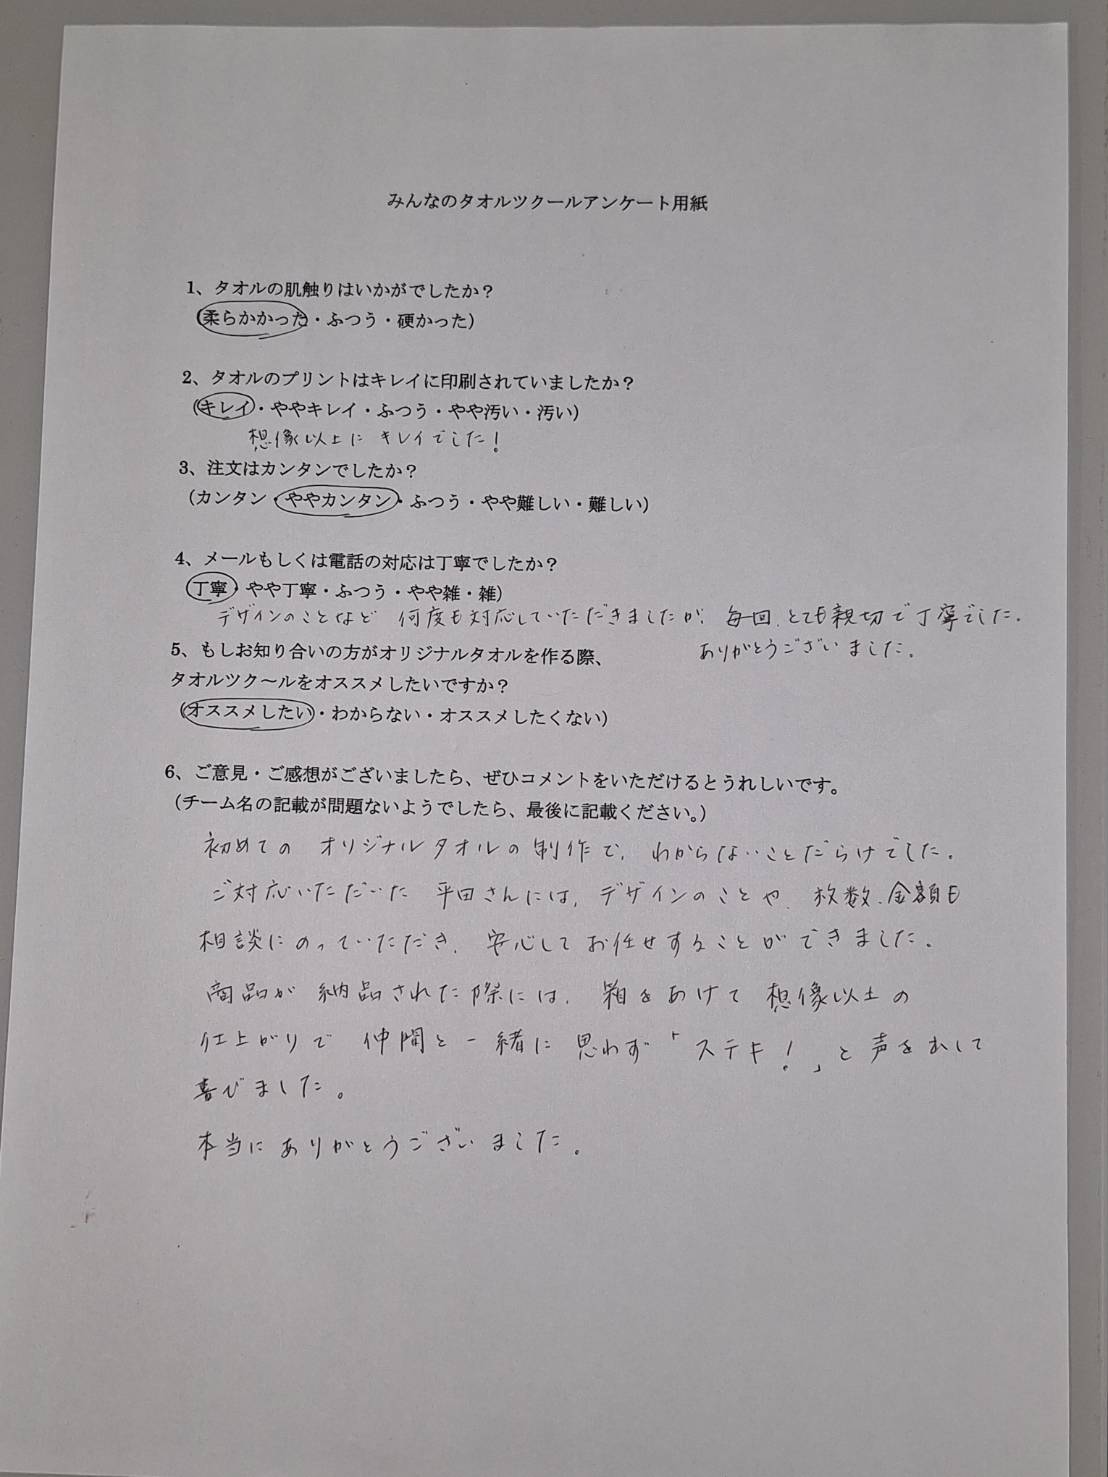 みんなのタオルツクールアンケート用紙
1、タオルの肌触りはいかがでしたか？
(柔らかかった・ふつう・硬かった)
2、タオルのプリントはキレイに印刷されていましたか？
(キレイ・ややキレイ・ふつう・やや汚い・汚い)
想像以上に キレイでした!
3、注文はカンタンでしたか？
(カンタン・ややカンタン・ふつう・やや難しい・難しい)
4、メールもしくは電話の対応は丁寧でしたか？
(丁寧・やや丁寧・ふつう・やや雑・雑)
デザインのことなど 何度も対応していただきましたが、毎回、とても親切で丁寧でした。
ありがとうございました。
5、もしお知り合いの方がオリジナルタオルを作る際、
タオルツク～ルをオススメしたいですか？
(オススメしたい・わからない・オススメしたくない)
6、ご意見・ご感想がございましたら、ぜひコメントをいただけるとうれしいです。
(チーム名の記載が問題ないようでしたら、最後に記載ください。)
初めての オリジナルタオルの制作で、わからないことだらけでした。
ご対応いただいた 平田さんには、デザインのことや、枚数、金額も
相談にのっていただき、安心してお任せすることができました。
商品が 納品された際には、箱をあけて 想像以上の
仕上がりで 仲間と一緒に 思わず「ステキ!」と声を出して
喜びました。
本当にありがとうございました。